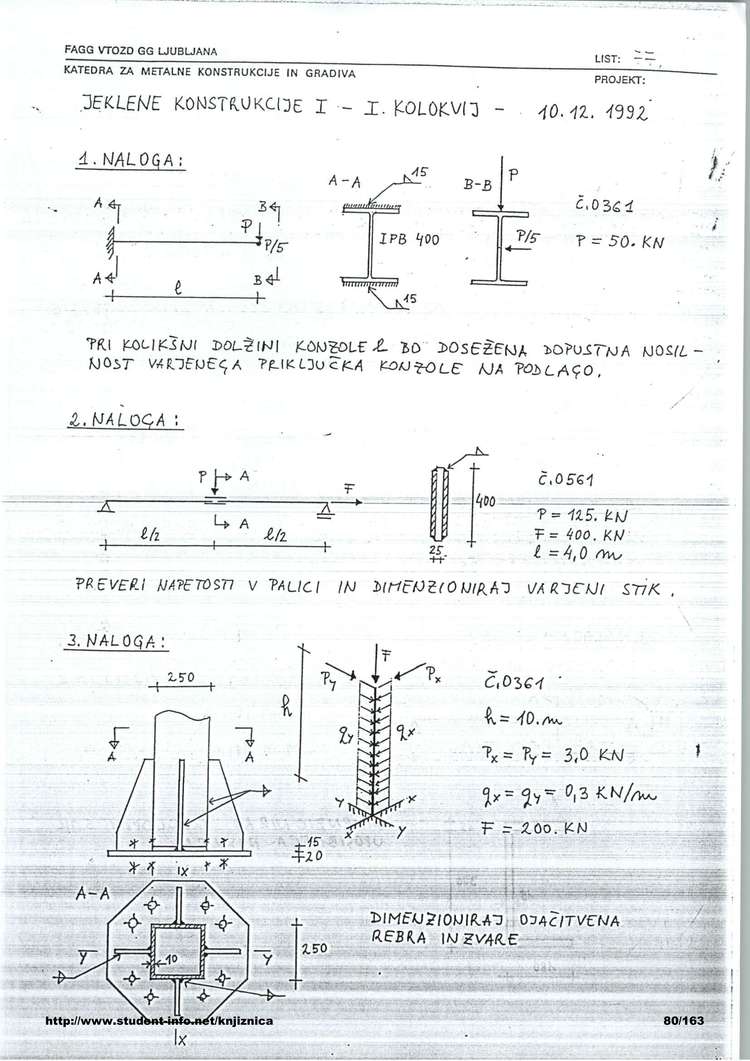 FAGG VTOZD GG LJUBLJANA
KATEDRA ZA METALNE KONSTRUKCIJE IN GRADIVA
LIST:
PROJEKT:
JEKLENE KONSTRUKCIJE I - I. KOLOKVIJ - 10.12.1992
1. NALOGA:
A
A
B
B
P
P/5
l
A-A
15
IPB 400
15
B-B
P
P/5
Č.0361
P = 50. KN
PRI KOLIKŠNI DOLŽINI KONZOLE l BO DOSEŽENA DOPUSTNA NOSIL-
NOST VARJENEGA PRIKLJUČKA KONZOLE NA PODLAGO.
2. NALOGA:
P
A
A
F
l/2
l/2
400
25
Č.0561
P = 125. KN
F = 400. KN
l = 4,0 m
PREVERI NAPETOSTI V PALICI IN DIMENZIONIRAJ VARJENI STIK.
3. NALOGA:
250
A
A
15
20
h
F
Py
Px
qy
qx
Y
X
X
Y
Č.0361
h = 10. m
Px = Py = 3,0 KN
qx = qy = 0,3 KN/m
F = 200. KN
A-A
X
Y
Y
10
250
X
DIMENZIONIRAJ OJAČITVENA
REBRA IN ZVARE
http://www.student-info.net/knjiznica
80/163